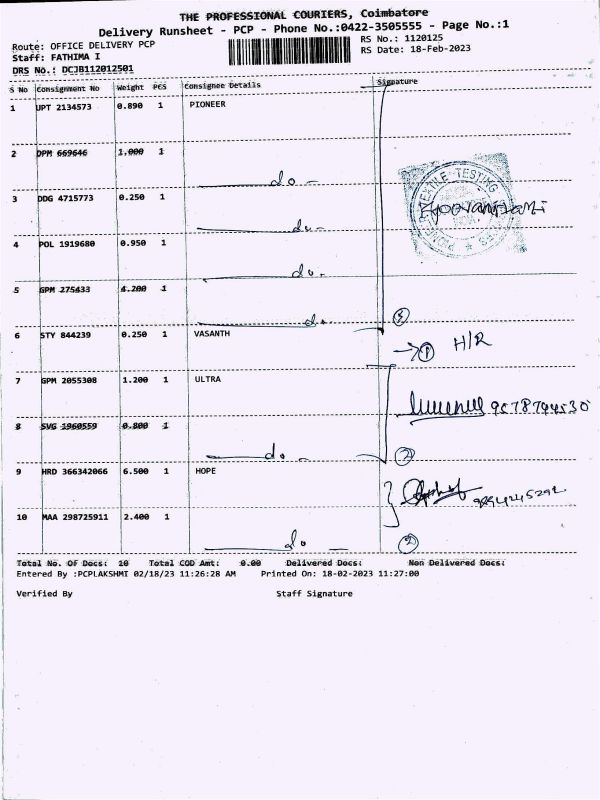 THE PROFESSIONAL COURIERS, Coimbatore
Delivery Runsheet - PCP - Phone No.:0422-3505555 - Page No.:1
Route: OFFICE DELIVERY PCP RS No.: 1120125
Staff: FATHIMA I RS Date: 18-Feb-2023
DRS No.: DCJB112012501
S No Consignment No Weight PCS Consignee Details Signature
1 UPT 2134573 0.890 1 PIONEER
2 DPM 669646 1.000 1
do -
3 DDG 4715773 0.250 1
do -
4 POL 1919680 0.950 1
do -
5 GPM 275433 4.200 1
do - 5
6 STY 844239 0.250 1 VASANTH
→ 1 H/R
7 GPM 2055308 1.200 1 ULTRA
9578794530
8 SVG 1960559 0.800 1
do - 2
9 HRD 366342066 6.500 1 HOPE
10 MAA 298725911 2.400 1
do 2
Total No. Of Docs: 10 Total COD Amt: 0.00 Delivered Docs: Non Delivered Docs:
Entered By :PCPLAKSHMI 02/18/23 11:26:28 AM Printed On: 18-02-2023 11:27:00
Verified By Staff Signature